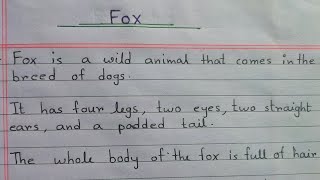 Fox
Fox is a wild animal that comes in the
breed of dogs.
It has four legs, two eyes, two straight
ears, and a padded tail.
The whole body of the fox is full of hair